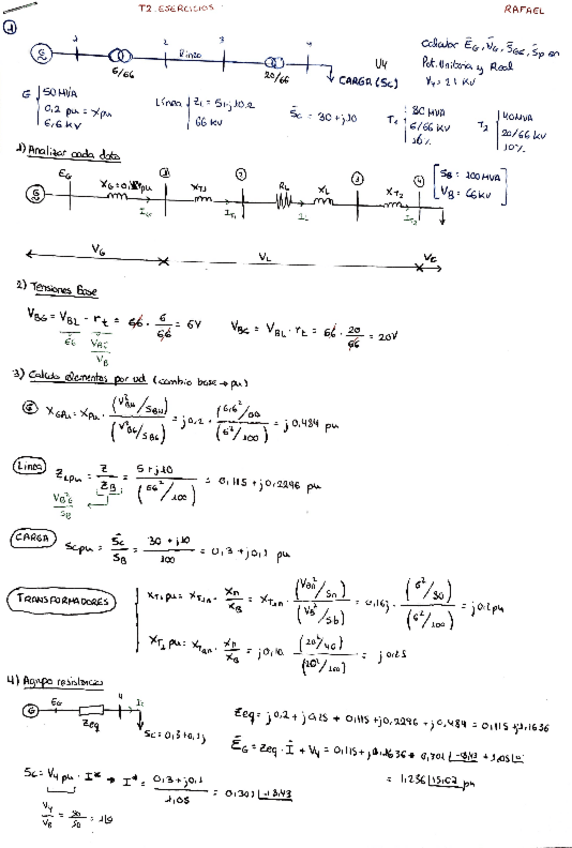 T2. EJERCICIOS
RAFAEL
1
G 1 2 Línea 3 4
6/66 20/66 V4
CARGA (Sc)
Calcular E̅G, V̅G, S̅GE, S̅p en
Pot. Unitaria y Real
G 50 MVA
0,2 pu = Xpu
6,6 KV
Línea ZL = 5+j10 Ω
66 KV
S̅c = 30 + j10
T1 80 MVA
6/66 KV
16%
T2 40 MVA
20/66 KV
10%
1) Analizar cada dato
SB = 100 MVA
VB = 66 KV
EG XG XT1 2 RL XL 3 XT2 4
G IT1 IL IT2
VG VL VC
2) Tensiones Base
VBG = VBL · rt = 66 · 6/66 = 6V VBC = VBL · rt = 66 · 20/66 = 20V
3) Calculo elementos por ud (cambio base → pu)
G XGpu = Xpu · (V²BN/SBN) / (V²BG/SBG) = j0,2 · (6,6²/50) / (6²/100) = j0,484 pu
Línea ZLpu = Z/ZB = 5+j10 / (66²/100) = 0,115 + j0,2296 pu
CARGA Scpu = S̅c/SB = 30+j10 / 100 = 0,3 + j0,1 pu
TRANSFORMADORES
XT1 pu = XT1n · Xn/XB = XT1n · (VBn²/Sn) / (VB²/Sb) = 0,16j · (6²/80) / (6²/100) = j0,2 pu
XT2 pu = XT2n · Xn/XB = j0,10 · (20²/40) / (20²/100) = j0,25
4) Agrupo resistencias
G EG Zeq 4
Sc = 0,3+0,1j
Zeq = j0,2 + j0,25 + 0,115 + j0,2296 + j0,484 = 0,115 + j1,1636
E̅G = Zeq · I̅ + V4 = 0,115 + j1,1636 · 0,301 |-18,43 + 1,05 |0
= 1,236 |15,67 pu
Sc = V4 pu · I* → I* = 0,3+j0,1 / 1,05 = 0,301 |-18,43